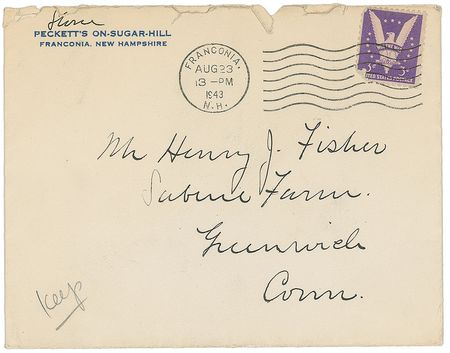 PECKETT'S ON-SUGAR-HILL
FRANCONIA, NEW HAMPSHIRE
FRANCONIA,
AUG 23
3-PM
1943
N.H.
3¢ 3¢
UNITED STATES POSTAGE
Mr Henry J. Fisher
Sabine Farm.
Greenwich
Conn.
Keep